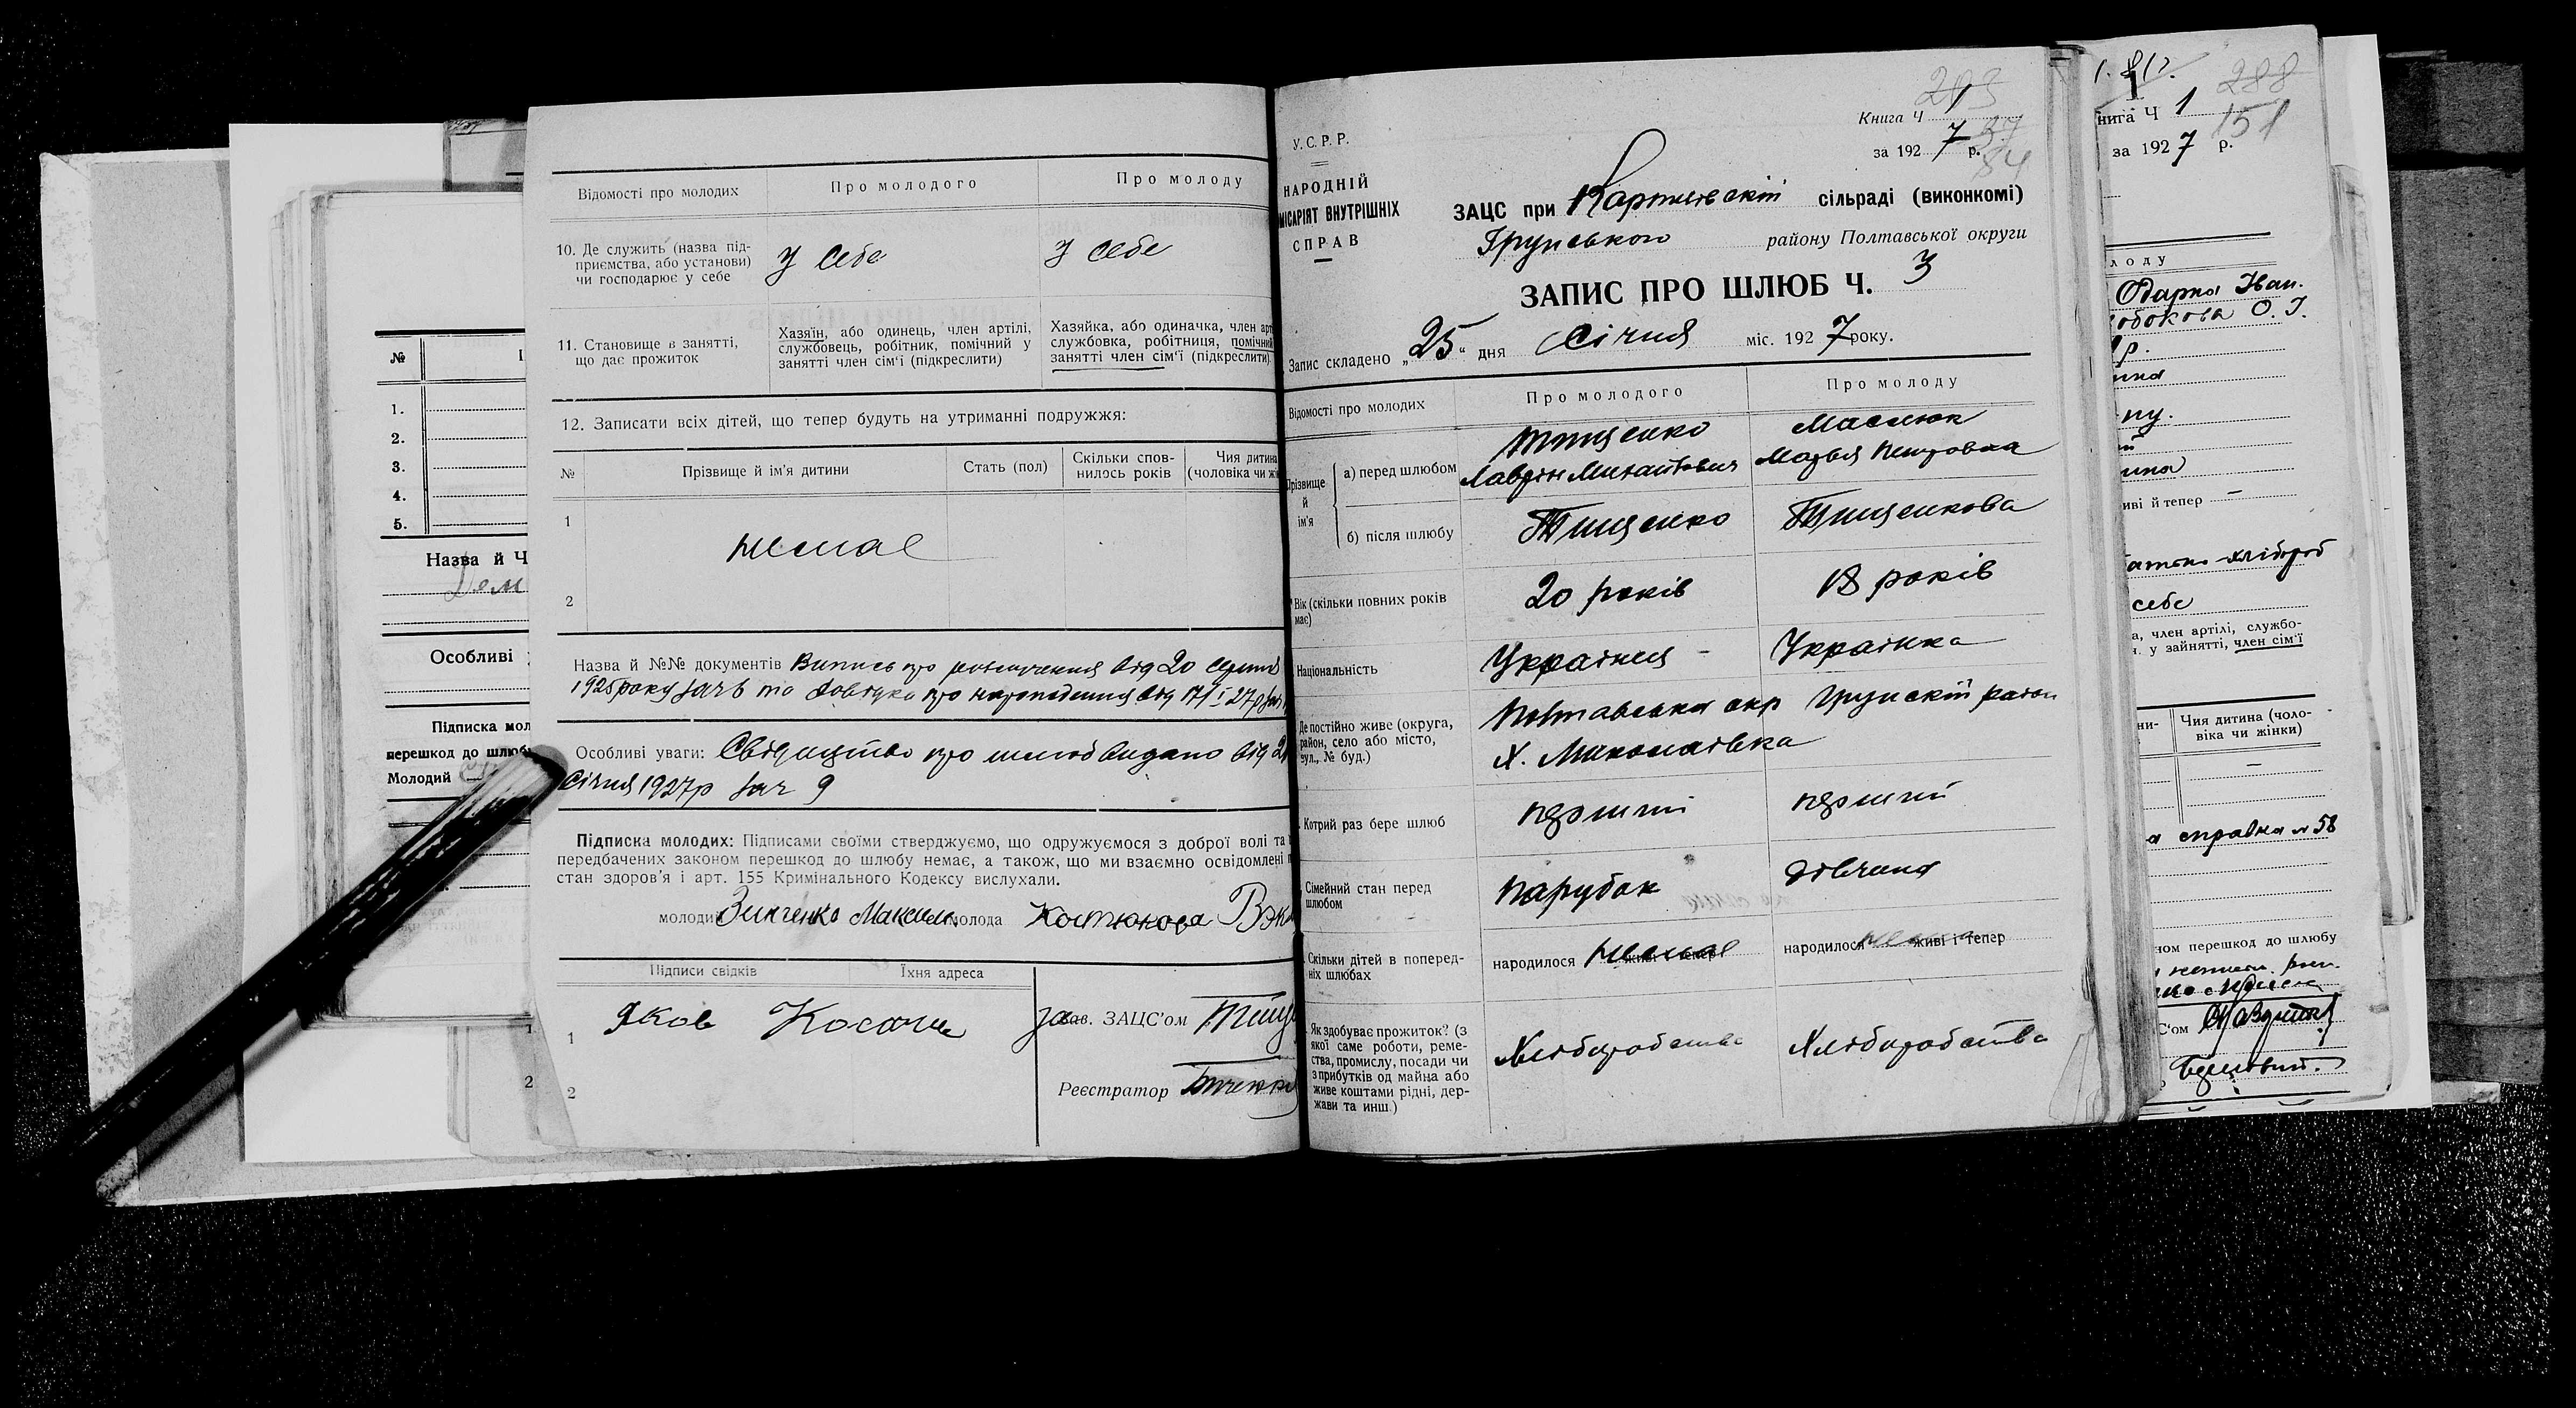 №
1.
2.
3.
4.
5.
Назва й Ч
Дем
Особливі
Підписка мол
перешкод до шлюб
Молодий
1
2
Відомості про молодих
Про молодого
Про молоду
10. Де служить (назва під-
приємства, або установи)
чи господарює у себе
У себе
У себе
11. Становище в занятті,
що дає прожиток
Хазяїн, або одинець, член артілі,
службовець, робітник, помічний у
занятті член сім'ї (підкреслити)
Хазяйка, або одиначка, член арт
службовка, робітниця, помічний
занятті член сім'ї (підкреслити).
12. Записати всіх дітей, що тепер будуть на утриманні подружжя:
№
Прізвище й ім'я дитини
Стать (пол)
Скільки спов-
нилось років
Чия дитина
(чоловіка чи жі
1
немає
2
Назва й №№ документів Випись про розлучення від 20 серпня
1925 року за ч 6 та довідка про народження від 17/I 27р
Особливі уваги: Свідицтво про шлюб видано від 2
Січня 1927р за ч 9
Підписка молодих: Підписами своїми стверджуємо, що одружуємося з доброї волі та
передбачених законом перешкод до шлюбу немає, а також, що ми взаємно освідомлені п
стан здоров'я і арт. 155 Кримінального Кодексу вислухали.
молодий Зинченко Максим молода Костюкова
Підписи свідків
Їхня адреса
1 Яков Косач
2
за зав. ЗАЦС'ом Тищ
Реєстратор
У. С. Р. Р.
НАРОДНІЙ
МІСАРІЯТ ВНУТРІШНІХ
СПРАВ
203
Книга Ч 1
за 192 7 р.
37
84
ЗАЦС при сільраді (виконкомі)
Грунського району Полтавської округи
ЗАПИС ПРО ШЛЮБ Ч. 3
Запис складено „25" дня Січня міс. 1927 року.
Відомості про молодих
Про молодого
Про молоду
Прізвище
й
ім'я
а) перед шлюбом
Тищенко
Лаврін Михайлович
Маслюк
Марья Петровна
б) після шлюбу
Тищенко
Тищенкова
Вік (скільки повних років
має)
20 років
18 років
Національність
Українец
Українка
Де постійно живе (округа,
район, село або місто,
вул., № буд.)
Полтавська окр Грунскій район
Х. Миколаївка
Котрий раз бере шлюб
першій
першій
Сімейний стан перед
шлюбом
парубок
дівчина
Скільки дітей в поперед-
ніх шлюбах
народилося немає живі і тепер
народилося немає живі і тепер
Як здобуває прожиток? (з
якої саме роботи, реме-
ства, промислу, посади чи
з прибутків од майна або
живе коштами рідні, дер-
жави та инш.)
Хліборобство
Хліборобства
нига Ч 1
288
151
за 1927 р.
лоду
Одарка Іван.
О. І.
р.
ина
иві й тепер —
хлібороб
себе
а, член артілі, службо-
н. у зайнятті, член сім'ї
ни-
Чия дитина (чоло-
віка чи жінки)
—
а справка № 58
ном перешкод до шлюбу
С'ом